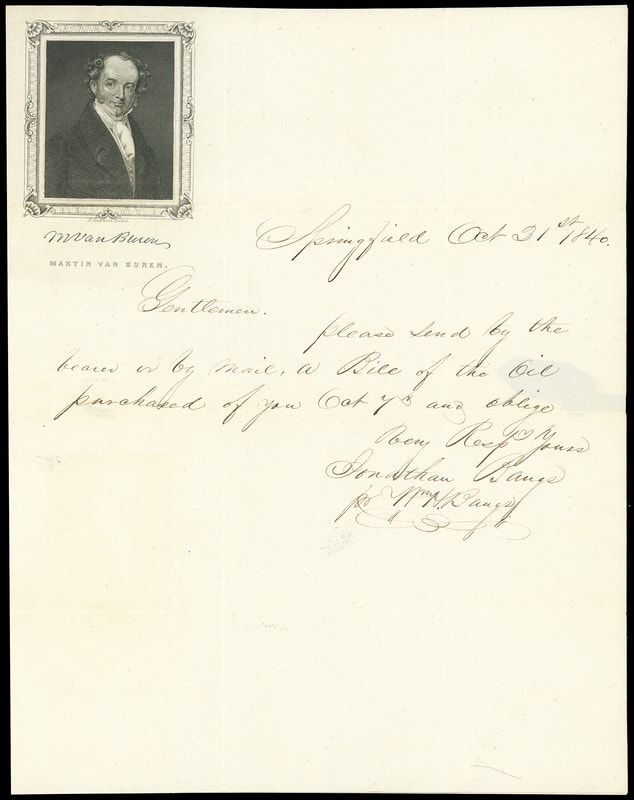 M Van Buren
MARTIN VAN BUREN.
Springfield Oct 21st 1840.
Gentlemen.
please send by the
bearer or by mail, a Bill of the Oil
purchased of you Oct 7th and oblige
Very Respy Yours
Jonathan Bangs
pr Wm H. Bangs